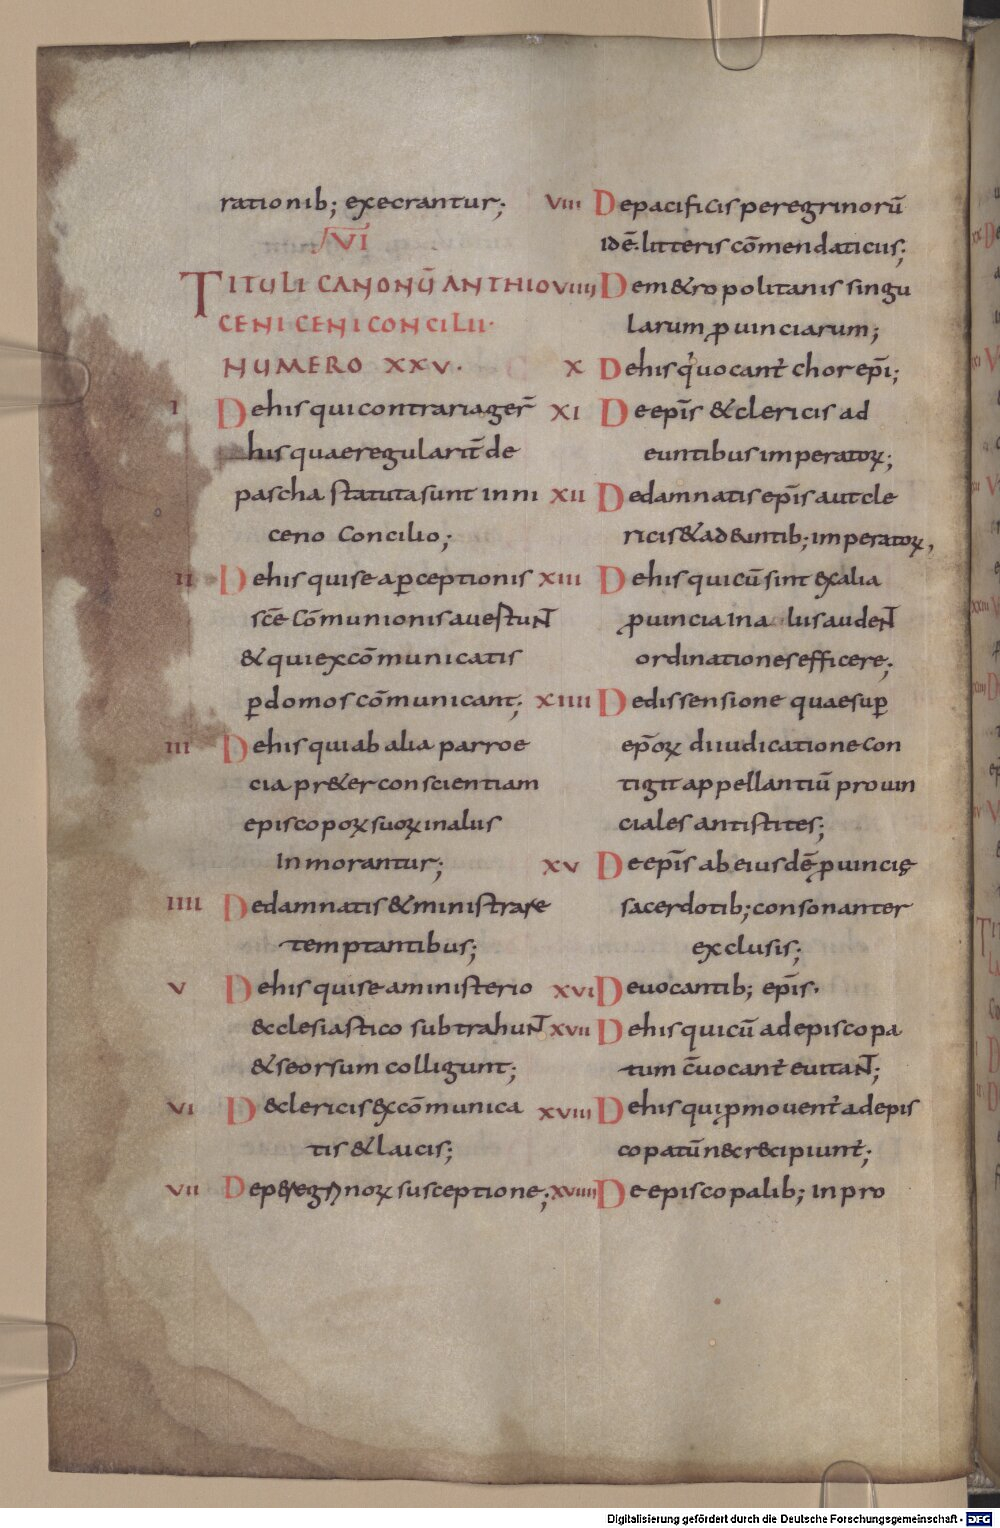 rationib; execrantur;
VI
TITULI CANONŪ ANTHIO
CENI CENI CONCILII·
NUMERO XXV·
I Dehis qui contraria ager̄
his quae regularit̄ de
pascha statuta sunt in ni
ceno concilio;
II Dehis qui se a p̱ceptionis
scē cōmunionis auestunt
& qui excōmunicatis
p̱domos cōmunicant;
III Dehis qui ab alia parroe
cia pr&er conscientiam
episcopoꝝ suoꝝ in alus
Inmorantur;
IIII Dedamnatis & ministrare
temptantibus;
V Dehis qui se a ministerio
&clesiastico subtrahunt
& seorsum colligunt;
VI D&clericis excōmunica
tis & laicis;
VII Deperegrinoꝝ susceptione;
VIII Depacificis peregrinorū
idē· litteris cōmendaticus;
VIIII Dem&ropolitanis singu
larum ꝓuinciarum;
X Dehis q'uocant' chorep̄i;
XI Deep̄is &clericis ad
euntibus imperatoꝝ;
XII Dedamnatis ep̄is aut cle
ricis & ad&untib; imperatoꝝ,
XIII Dehis qui cū sint exalia
ꝓuincia in a lus audent
ordinationes efficere;
XIIII Dedissensione quae sup̱
ep̄oꝝ diiudicatione con
tigit appellantiū prouin
ciales antistites;
XV Deep̄is ab eiusdē ꝓuincię
sacerdotib; consonanter
exclusis;
XVI Deuocantib; ep̄is·
XVII Dehis qui cū ad episcopa
tum c̄uocant' euitant;
XVIII Dehis qui ꝓmouent' ad epis
copatū nec recipiunt';
XVIIII De episcopalib; in pro
Digitalisierung gefördert durch die Deutsche Forschungsgemeinschaft - DFG